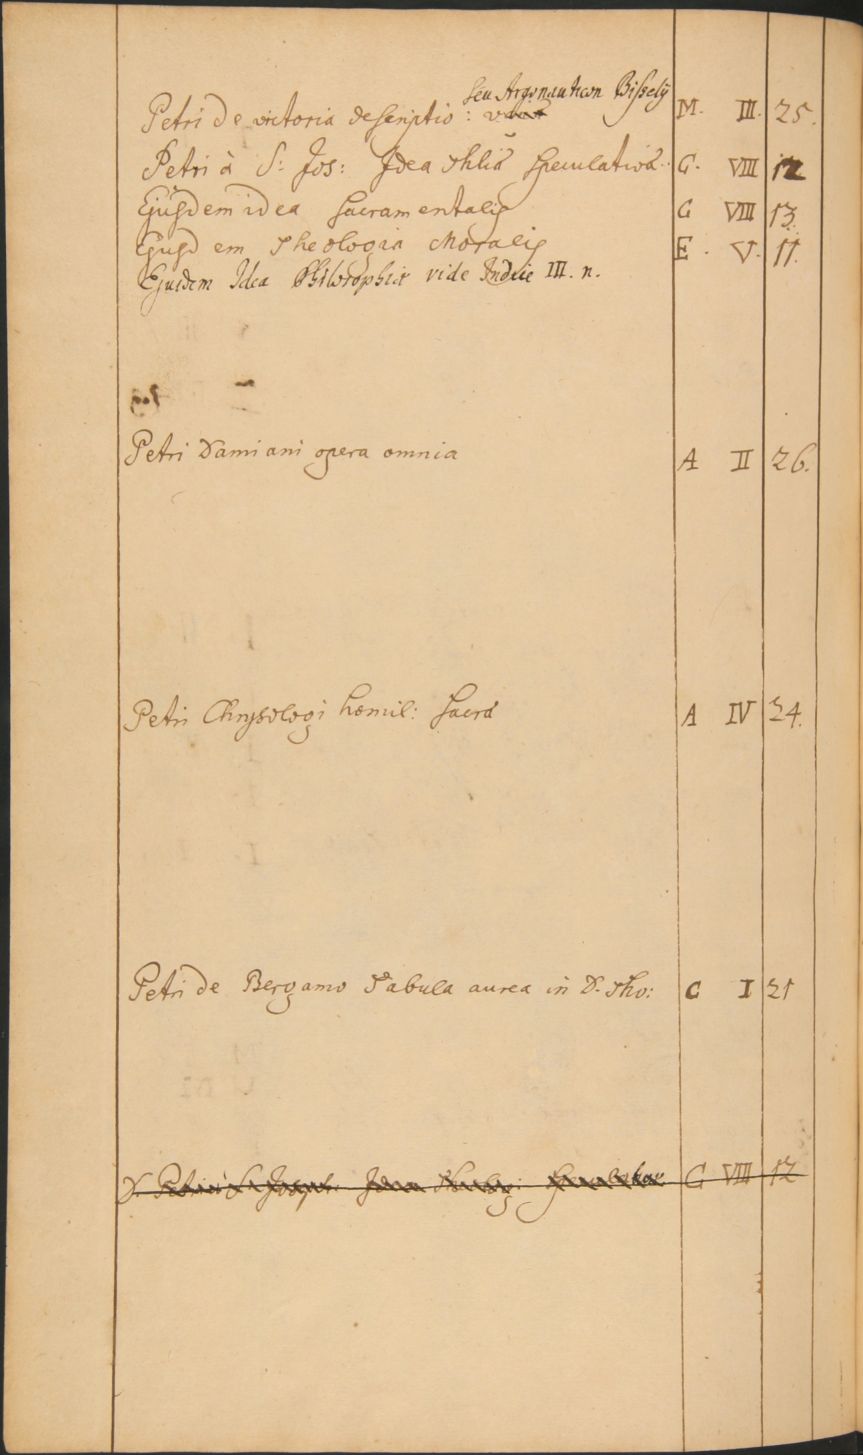 seu Argonauticon Bisselÿ
Petri De victoria descriptio: M. III. 25.
Petri à S: Jos: Idea thliæ speculativæ. C. VIII 12
Ejusdem idea sacramentalis C VIII 13.
Ejusdem Theologia Moralis E. V. 11.
Ejusdem Idea Philosophiæ vide Indice III. n.
Petri Damiani opera omnia A II 26.
Petri Chrysologi homil: sacræ A IV 24.
Petri de Bergamo Tabula aurea in D. Tho: C I 21
C VIII 12